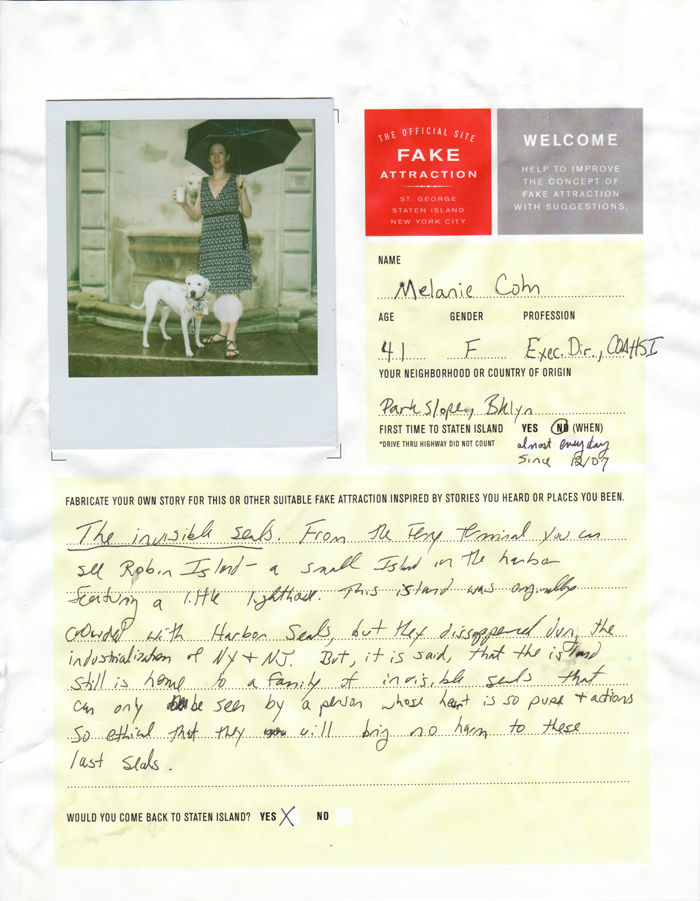 THE OFFICIAL SITE
FAKE
ATTRACTION
ST. GEORGE
STATEN ISLAND
NEW YORK CITY
WELCOME
HELP TO IMPROVE
THE CONCEPT OF
FAKE ATTRACTION
WITH SUGGESTIONS.
NAME
Melanie Cohn
AGE GENDER PROFESSION
41 F Exec. Dir., COAHSI
YOUR NEIGHBORHOOD OR COUNTRY OF ORIGIN
Park Slope, Bklyn
FIRST TIME TO STATEN ISLAND YES NO (WHEN)
*DRIVE THRU HIGHWAY DID NOT COUNT almost every day
since 12/07
FABRICATE YOUR OWN STORY FOR THIS OR OTHER SUITABLE FAKE ATTRACTION INSPIRED BY STORIES YOU HEARD OR PLACES YOU BEEN.
The invisible seals. From the Ferry Terminal you can
see Robin Island - a small Island in the harbor
featuring a little lighthouse. This island was originally
crowded with Harbor Seals, but they dissappeared during the
industrialization of NY + NJ. But, it is said, that the island
still is home to a family of invisible seals that
can only be seen by a person whose heart is so pure + actions
so ethical that they will bring no harm to these
last seals.
WOULD YOU COME BACK TO STATEN ISLAND? YES X NO